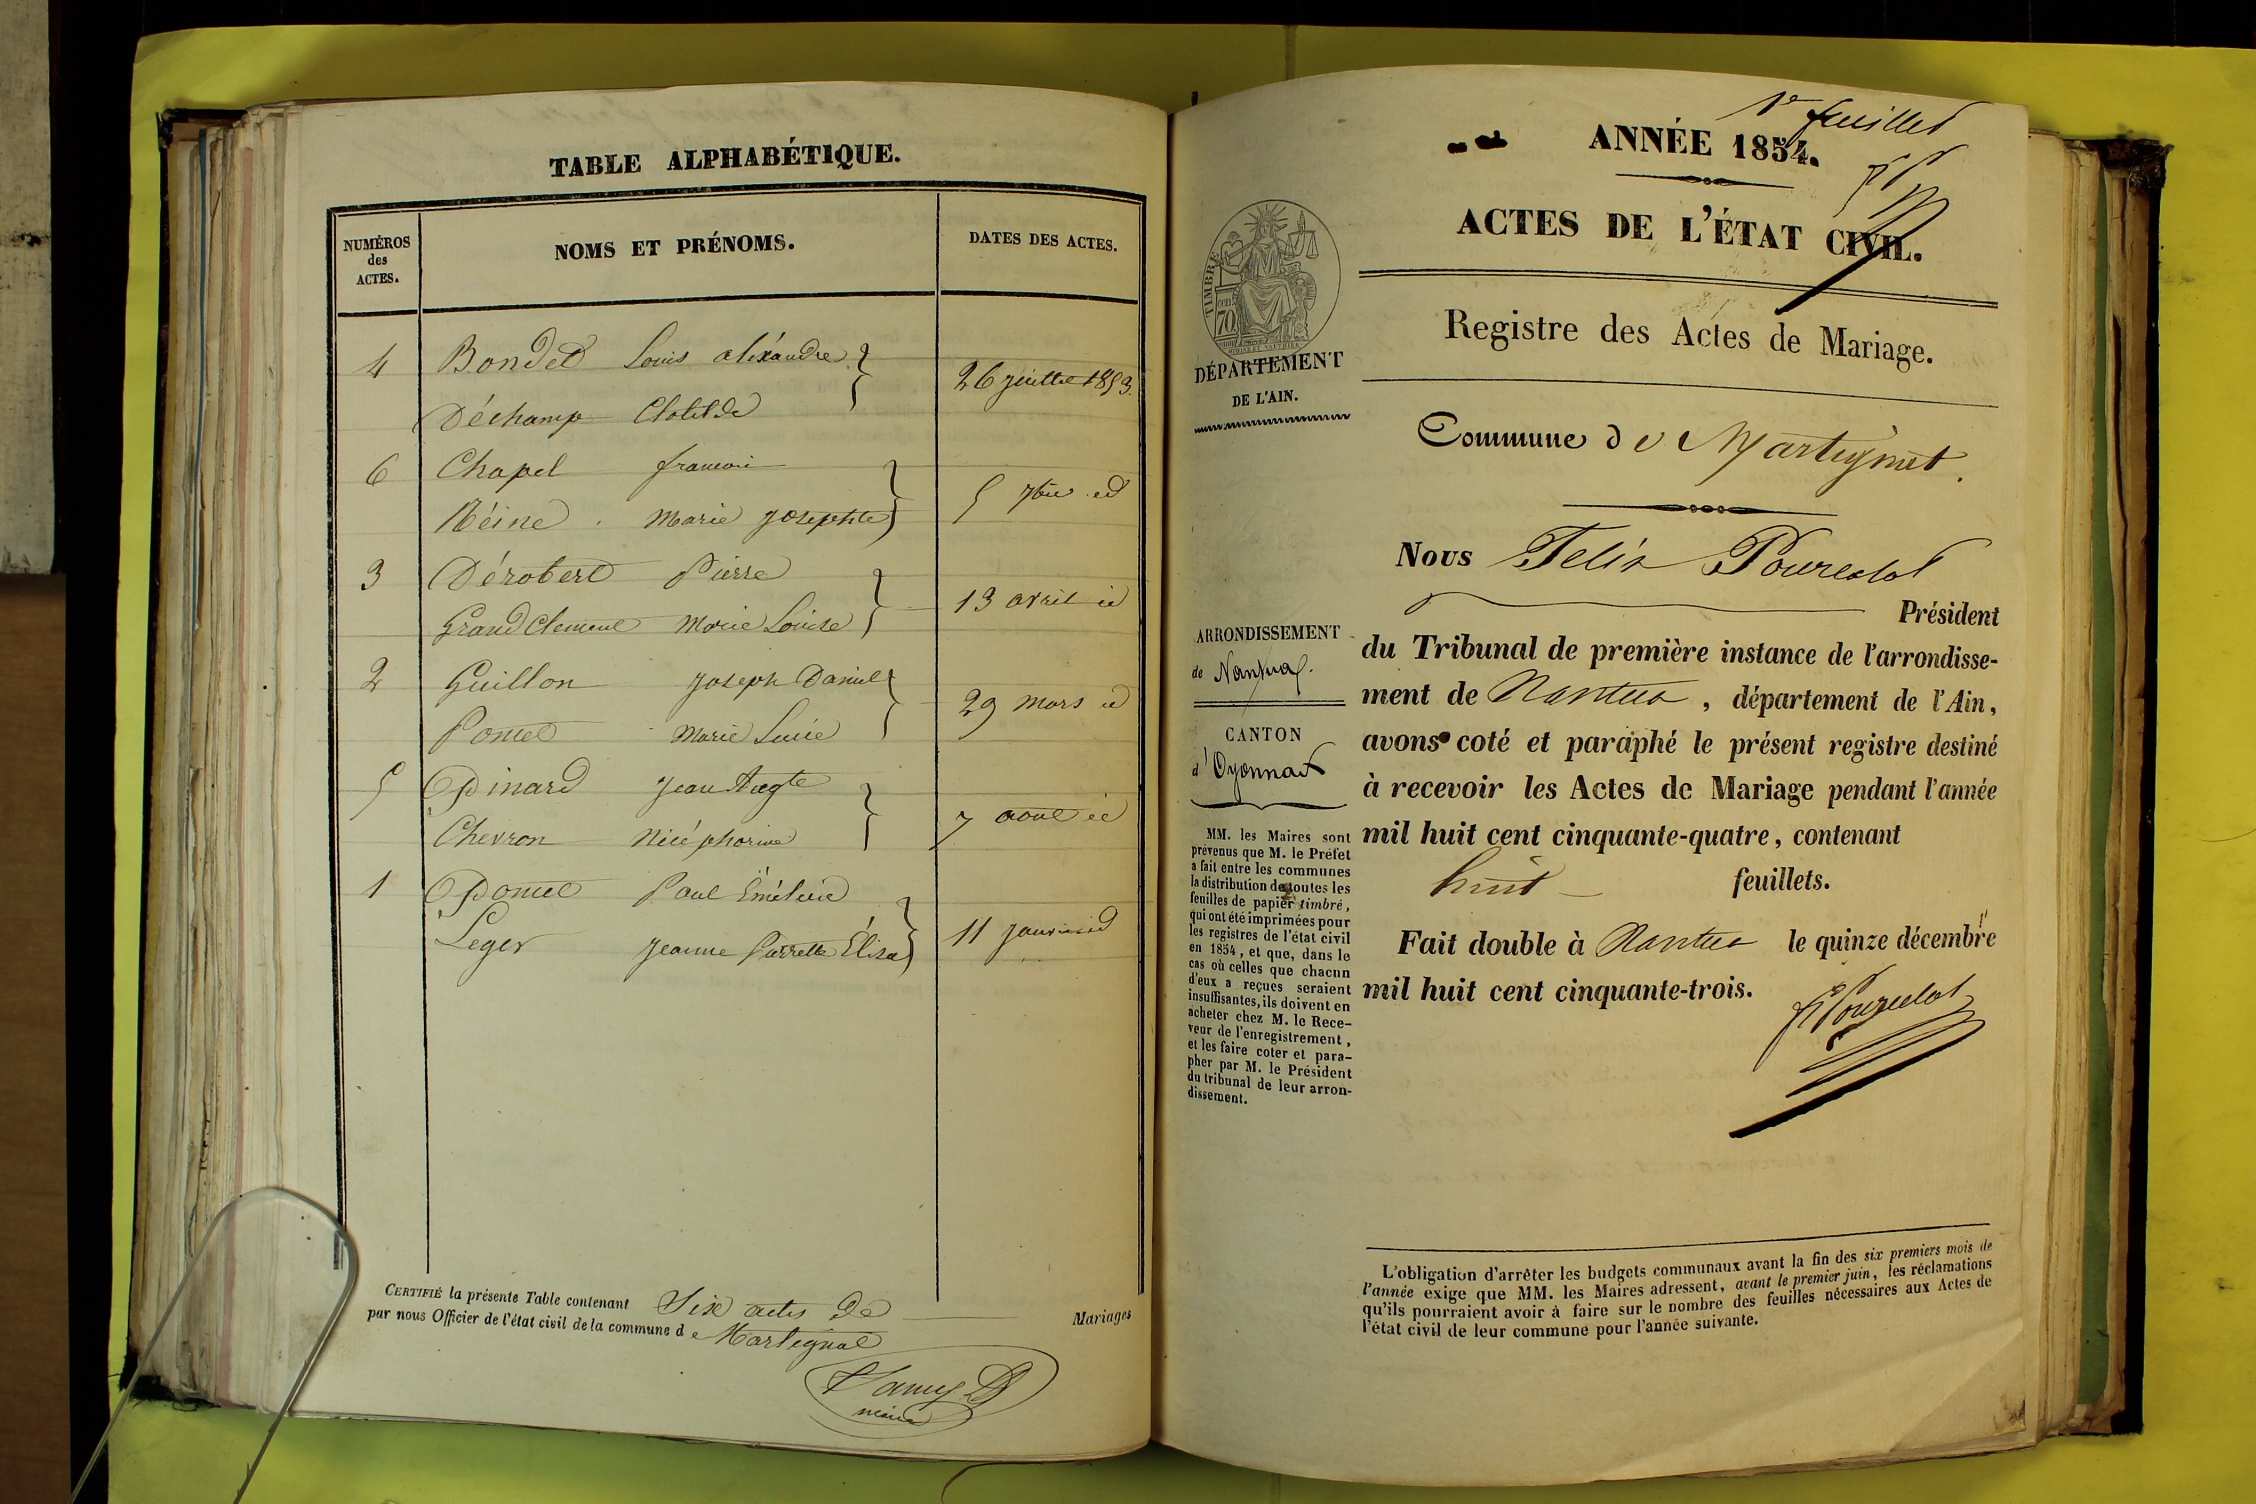 TABLE ALPHABÉTIQUE.
NUMÉROS des ACTES.
NOMS ET PRÉNOMS.
DATES DES ACTES.
4 Bondet Louis aléxandre
Déchamp Clotilde
26 juillet 1853.
6 Chapel francois
Réine Marie Josephte
5 7bre id
3 Dérobert Pierre
Grand Clement Marie Louise
13 avril id
2 Guillon Joseph Daniel
Pomet Marie Lucie
29 mars id
5 Pinard Jean Augte
Chevron Nicéphorine
7 aout id
1 Pomet Paul Émélie
Leger Jeanne Pierrette Élisa
11 janvier id
CERTIFIÉ la présente Table contenant Six actes de Mariages
par nous Officier de l'état civil de la commune de Martignat
maire
1er feuillet
ANNÉE 1854.
ACTES DE L'ÉTAT CIVIL.
TIMBRE
70
DÉPARTEMENT
DE L'AIN.
Registre des Actes de Mariage.
Commune de Martignat.
Nous Félix Pourcelot
Président
ARRONDISSEMENT
de Nantua.
CANTON
d'Oyonnax
MM. les Maires sont
prévenus que M. le Préfet
a fait entre les communes
la distribution de toutes les
feuilles de papier timbré,
qui ont été imprimées pour
les registres de l'état civil
en 1854, et que, dans le
cas où celles que chacun
d'eux a reçues seraient
insuffisantes, ils doivent en
acheter chez M. le Rece-
veur de l'enregistrement,
et les faire coter et para-
pher par M. le Président
du tribunal de leur arron-
dissement.
du Tribunal de première instance de l'arrondisse-
ment de Nantua, département de l'Ain,
avons coté et paraphé le présent registre destiné
à recevoir les Actes de Mariage pendant l'année
mil huit cent cinquante-quatre, contenant
huit feuillets.
Fait double à Nantua le quinze décembre
mil huit cent cinquante-trois.
F Pourcelot
L'obligation d'arrêter les budgets communaux avant la fin des six premiers mois de
l'année exige que MM. les Maires adressent, avant le premier juin, les réclamations
qu'ils pourraient avoir à faire sur le nombre des feuilles nécessaires aux Actes de
l'état civil de leur commune pour l'année suivante.